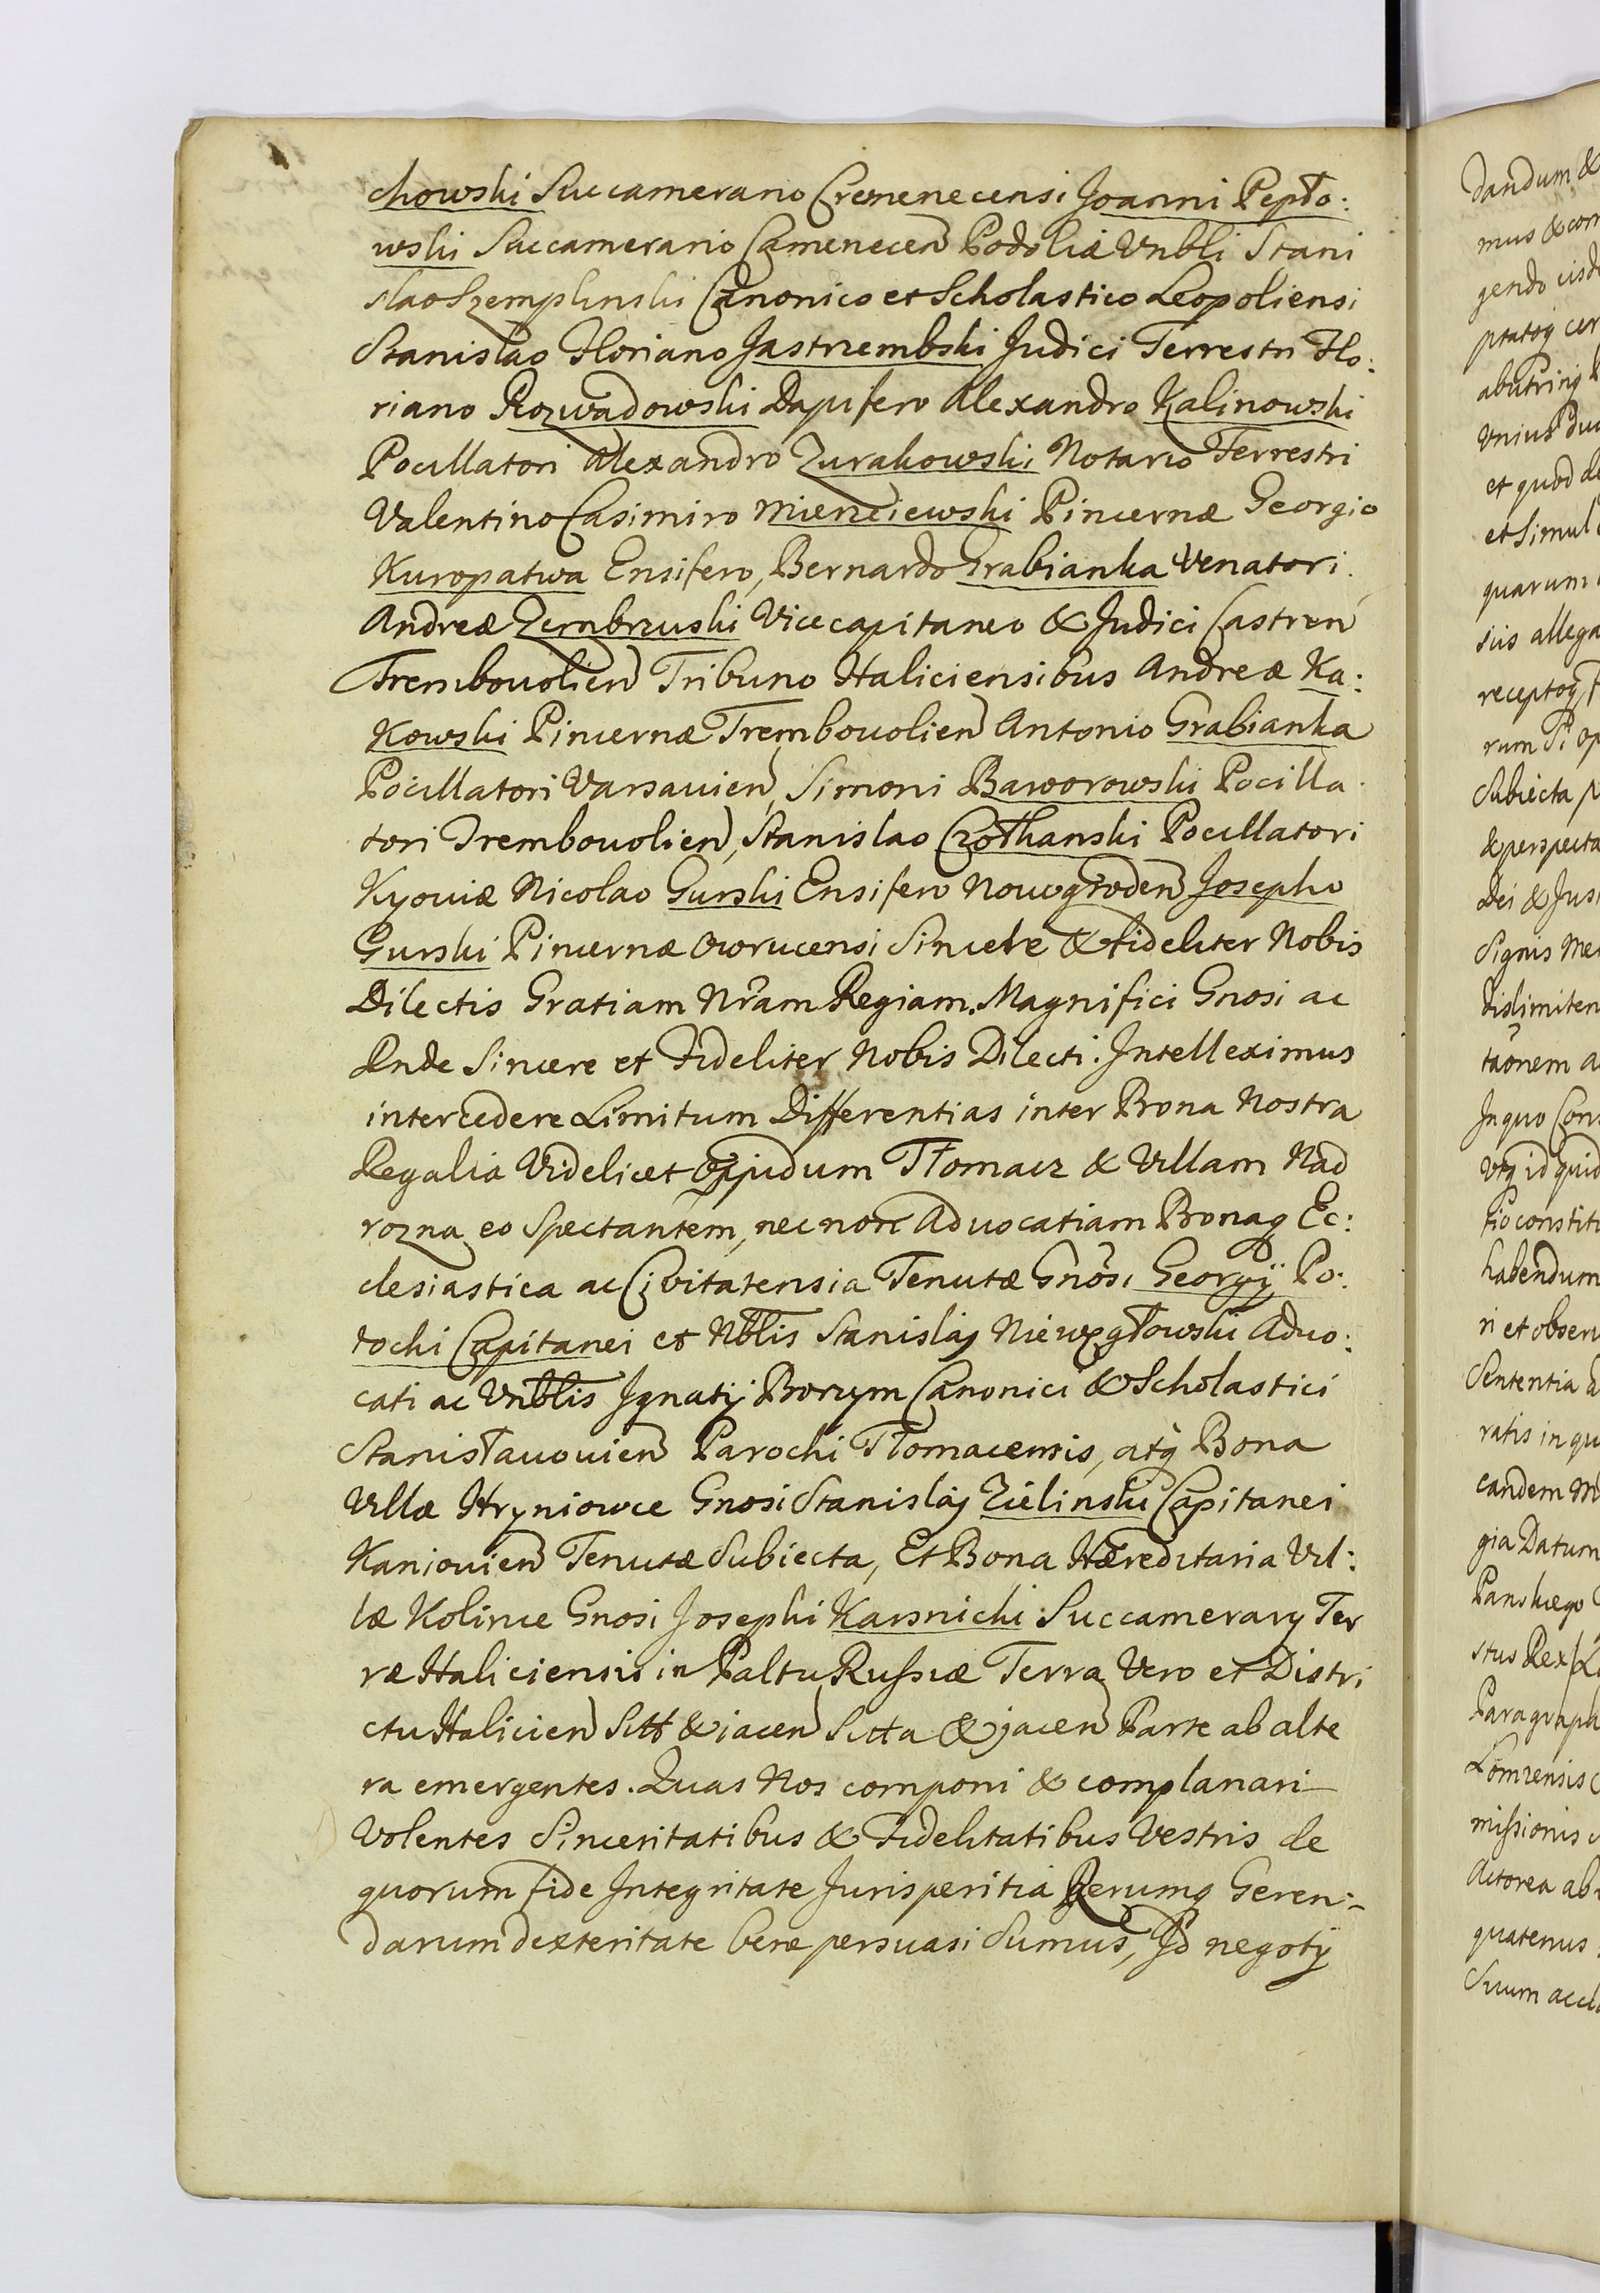 chowski Succamerario Cremenecensi Joanni Pepło:
wski Succamerario Camenecen Podoliæ Vnbli Stani
slao Szemplinski Canonico et Scholastico Leopoliensi
Stanislao Floriano Jastrzembski Judici Terrestri Flo:
riano Rozwadowski Dapifero Alexandro Kalinowski
Pocillatori Alexandro Zurakowski Notario Terrestri
Valentino Casimiro Mierzeiewski Pincernæ Georgio
Kuropatwa Ensifero, Bernardo Grabianka Venatori
Andreæ Zembrzuski Vicecapitaneo & Judici Castren
Trembouolien Tribuno Haliciensibus Andreæ Ka:
Kowski Pincernæ Trembouolien Antonio Grabianka
Pocillatori Varsauien, Simoni Baworowski Pocilla
tori Trembouolien, Stanislao Czołhanski Pocillatori
Kyouiæ Nicolao Gurski Ensifero Nowogroden Josepho
Gurski Pincernæ Owrucensi Sincere & fideliter Nobis
Dilectis Gratiam Nram Regiam. Magnifici Gnosi ac
Rnde Sincere et Fideliter Nobis Dilecti. Intelleximus
intercedere Limitum Differentias inter Bona Nostra
Regalia Videlicet Oppidum Tłomacz & Villam Nad
rozna eo Spectantem, nec non Aduocatiam Bonaq Ec:
clesiastica ac Civitatensia Tenutæ Gnosi Georgij Po:
tocki Capitanei et Nblis Stanislaj Niewęgłowski Aduo:
cati ac Vnblis Ignatij Borzym Canonici & Scholastici
Stanisłauouien Parochi Tłomacensis, atq Bona
Villæ Hryniowce Gnosi Stanislaj Zielinski Capitanei
Kaniouien Tenutæ Subiecta, Et Bona Hæreditaria Vil:
læ Kolince Gnosi Josephi Karsnicki Succamerary Ter
ræ Haliciensis in Paltu Russiæ Terra Vero et Distri
ctu Halicien Sitt & iacen Sitta & jacen Parte ab alte
ra emergentes. Quas Nos componi & complanari
Volentes Sinceritatibus & Fidelitatibus Vestris de
quorum fide Integritate Jurisperitia Rerumq Geren:
darum dexteritate bene persuasi Sumus, Id negotij
dandum &
mus & com
gendo
ptatoq cer
abutring
Vnius
et quod de
et Simul
quarum
siis allega
receptoq
rum Si op
Subiecta p
& perspecta
Dei & Jus
Signis Me
dislimiten
taonem a
In quo Con
Vtq id quid
habendum
ri et obser
Sententia
ratis in qu
eandem M
gia Datum
Panskiego
stus Rex
Paragraph
Lomzensis
missionis
Actorea ab
quatenus
Suum